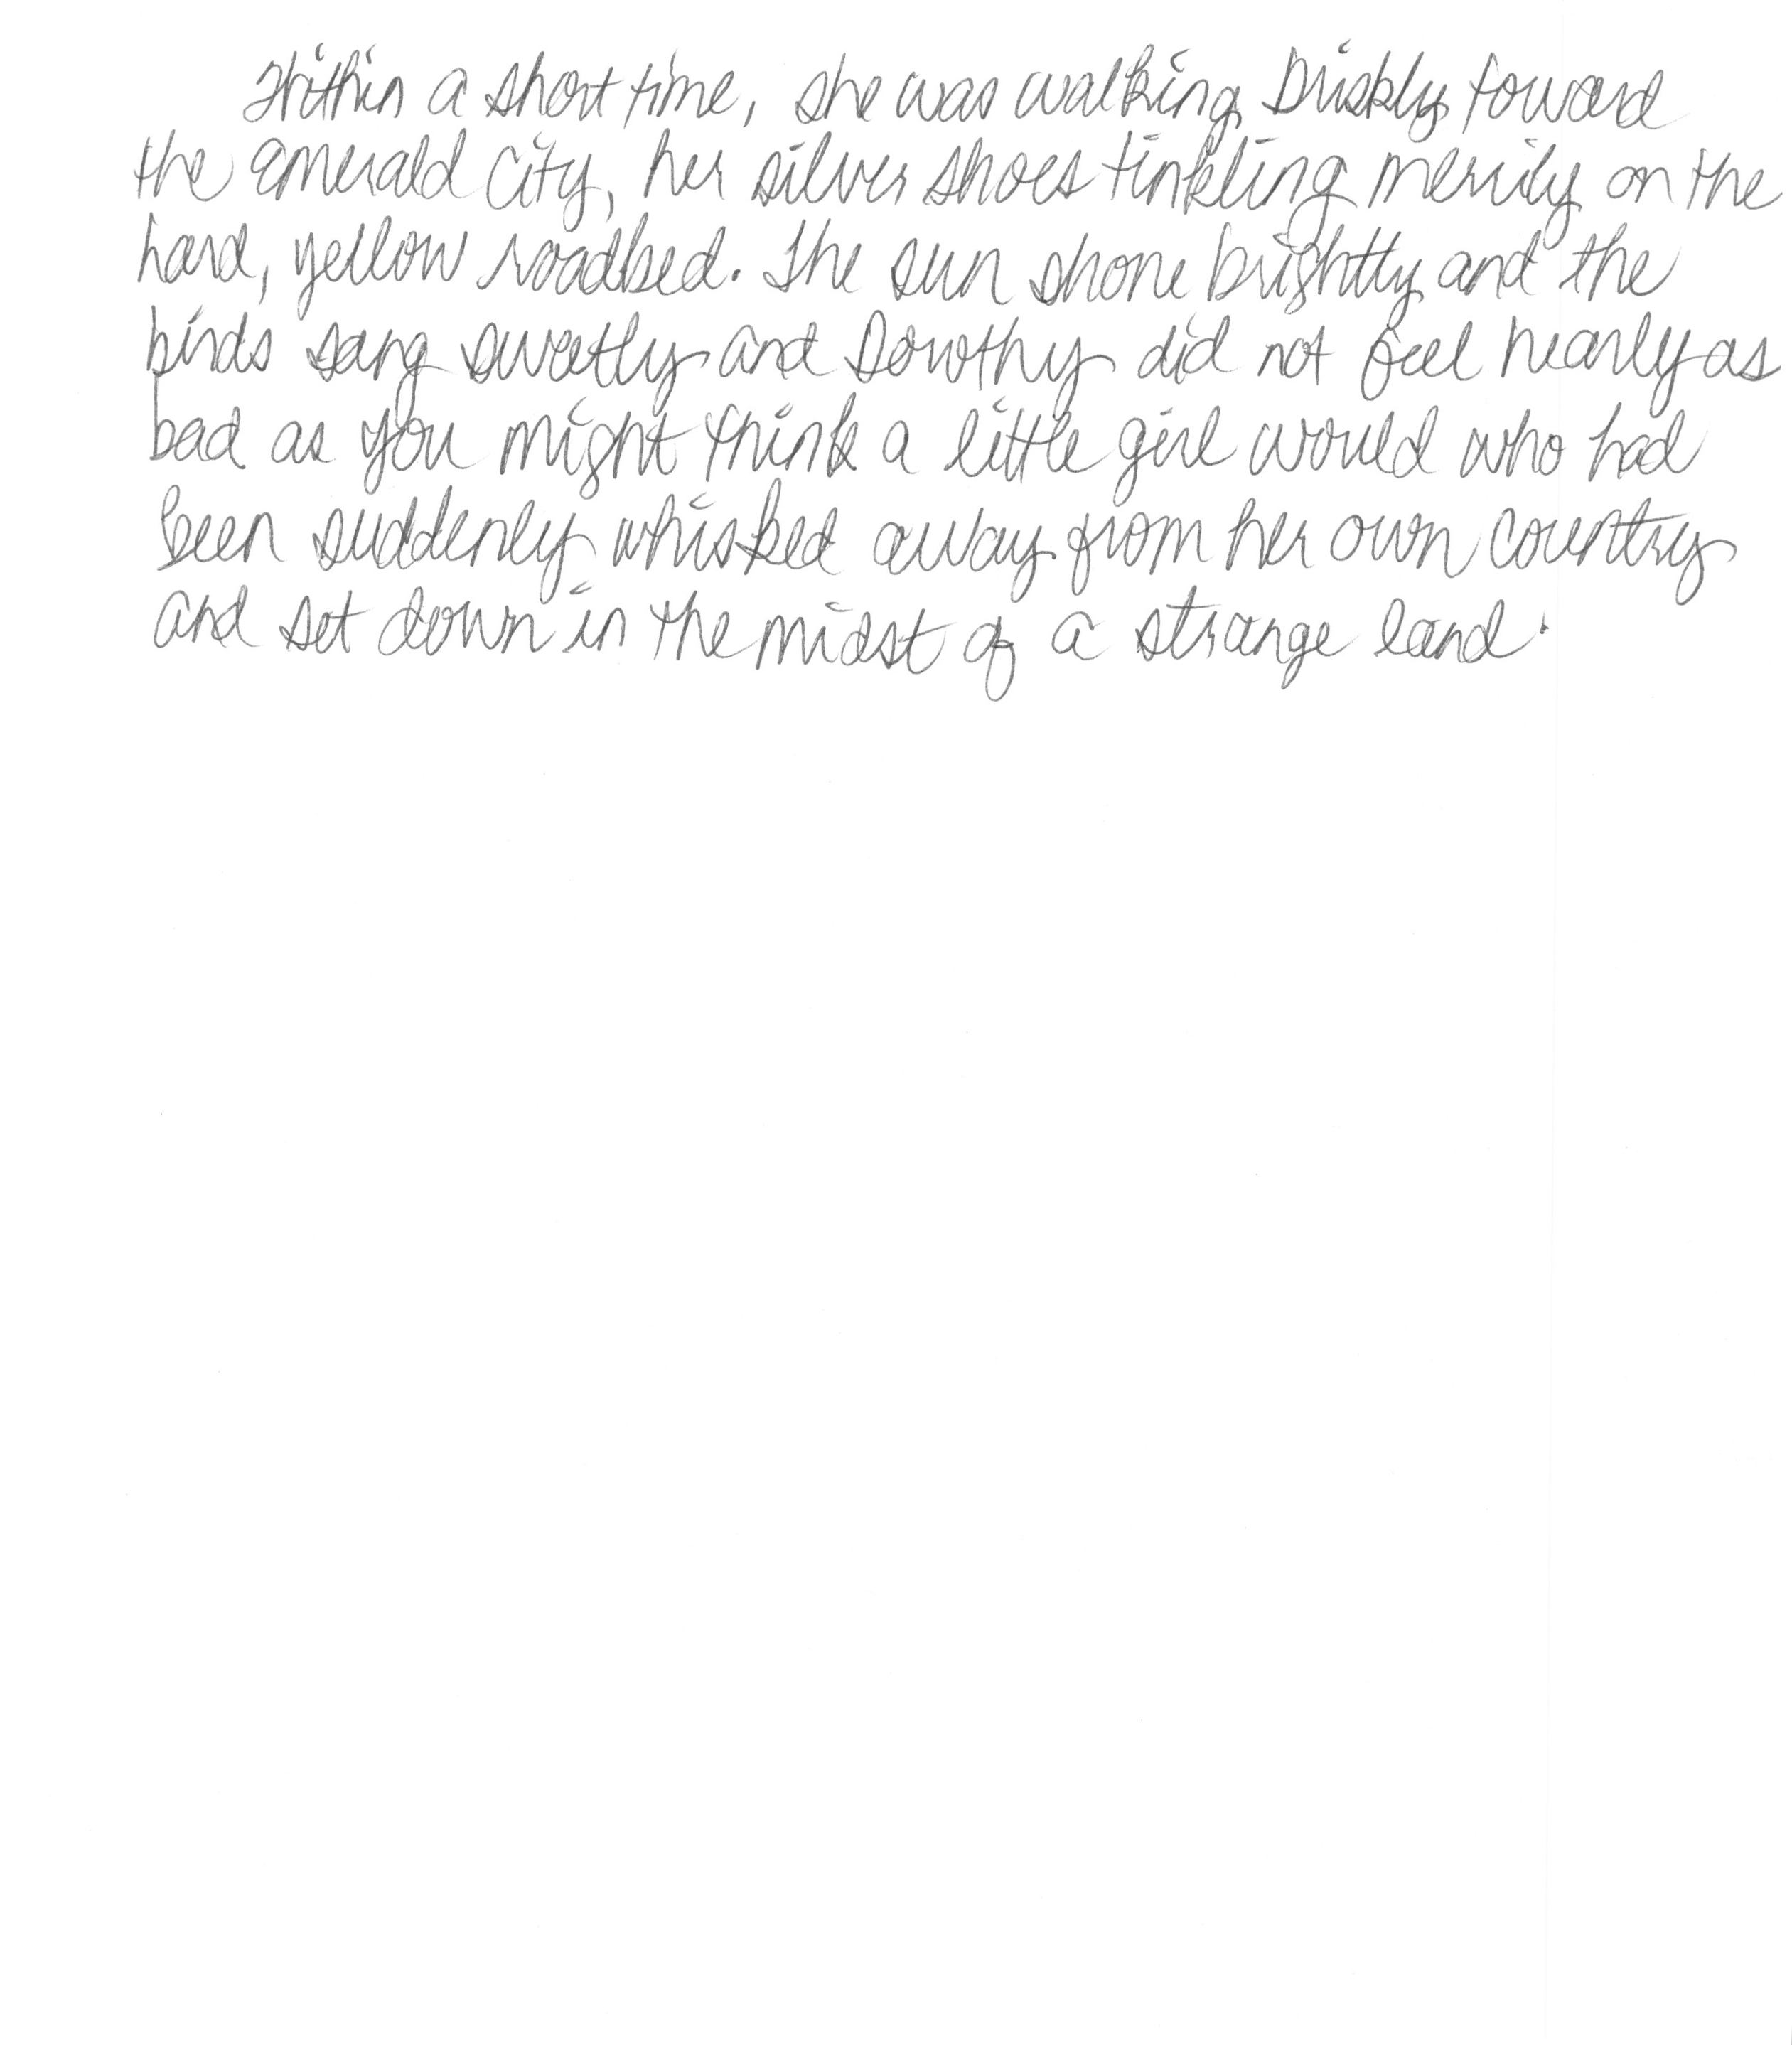 Within a short time, she was walking briskly toward
the Emerald City, her silver shoes tinkling merrily on the
hard, yellow roadbed. The sun shone brightly and the
birds sang sweetly and Dorothy did not feel nearly as
bad as you might think a little girl would who had
been suddenly whisked away from her own country
and set down in the midst of a strange land.